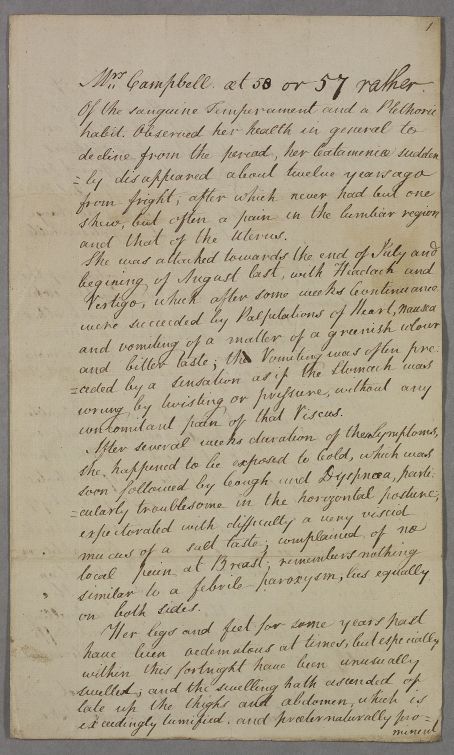 1
Mrs Campbell. æt 58 or 57 rather.
Of the sanguine Temperament and a Plethoric
habit. Observed her health in general to
decline from the period, her Catamenia sudden
=ly disappeared about twelve years ago
from fright, after which never had but one
shew, but often a pain in the lumbar region
and that of the Uterus.
She was attacked towards the end of July and
begining of August last, with Headach and
Vertigo, which after some weeks Continuance
were succeeded by Palpitations of Heart, nausea
and vomiting of a matter of a greenish colour
and bitter taste; the Vomiting was often pre=
=ceded by a sensation as if the Stomach was
wrung by twisting or pressure, without any
concomitant pain of that Viscus.
After several weeks duration of these Symptoms,
she happened to be exposed to Cold, which was
soon followed by Cough and Dyspnœa, parti
=cularly troublesome in the horizontal posture;
expectorated with difficulty a very viscid
mucus of a salt taste; complained of no
local pain at Breast; remembers nothing
similar to a febrile paroxysm, lies equally
on both sides.
Her legs and feet for some years past
have been oedematous at times, but especially
within this fortnight have been unusually
swelled; and the swelling hath ascended of
late up the thighs and abdomen, which is
exceedingly tumified, and præternaturally pro=
minent